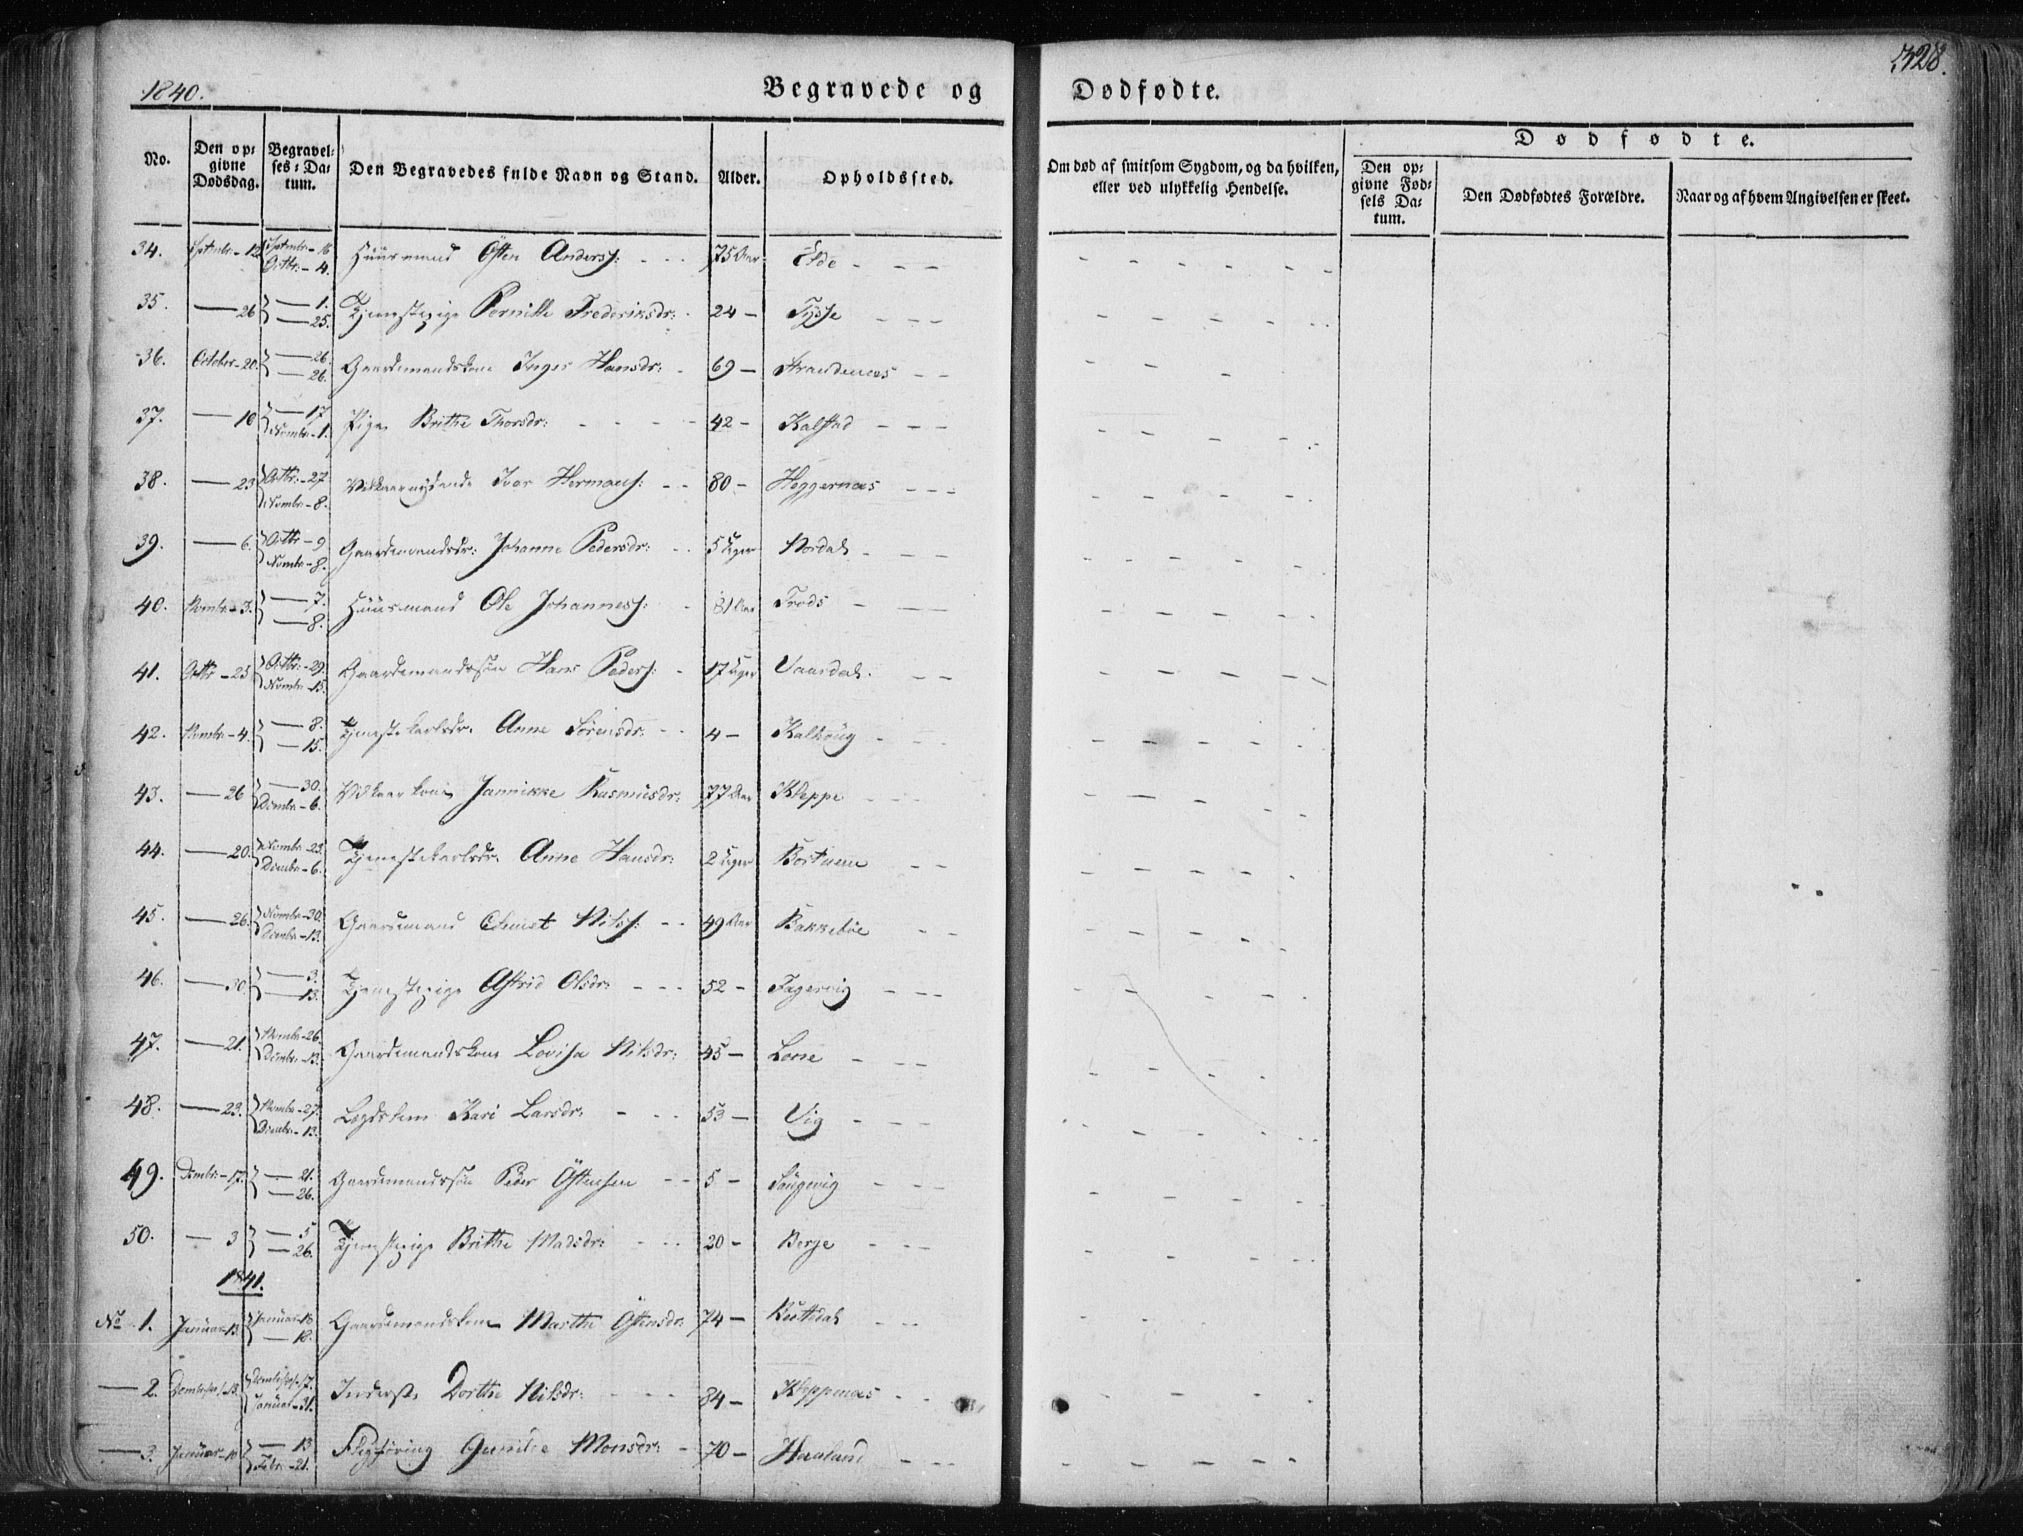 328.
1840. Begravede og Dødfødte.
No. Den opgivne Dødsdag. Begravelses-Datum. Den Begravedes fulde Navn og Stand. Alder. Opholdssted. Om død af smitsom Sygdom, og da hvilken, eller ved ulykkelig Hendelse. Dødfødte.
Den opgivne Fødsels Datum. Den Dødfødtes Forældre. Naar og af hvem Angivelsen er skeet.
34. Septmbr - 12 Septmbr - 16 Octbr: - 4. Huusmand Østen Anderss: 75 Aar Eide
35. — 26 — 1. — 25. Tjenestepige Pernille Frederiksdr: 24 — Tysse
36. October - 20. — 26. — 26. Gaardemandskone Inger Hansdr: 69 — Strandenæs
37. — 10 — 17. Novmbr - 1. Pige Brithe Thorsdr: 42 — Kalstad
38. — 23 Octbr: - 27 Novmbr - 8. Vilkaarnydende Iver Hermans: 80 — Heggernæs
39. — 6. Octbr - 9 Novmbr - 8. Gaardemandsdr: Johanne Pedersdr: 5 Uger Nordal
40. Novmbr - 3. — 7. — 8. Huusmand Ole Johanness: 81 Aar
41. Octbr - 25 Octbr: - 29. Novmbr - 15. Gaardemandssøn Hans Peders: 17 Uger Vaardal
42. Novmbr - 4. — 8. — 15. Tjenestekarlsdr. Anne Sørensdr: 4 —
43. — 26 — 30. Dcmbr - 6. Vilkaarkone Jannikke Rasmusdr: 77 Aar Kleppe
44. — 20. Novmbr - 23. Dcmbr - 6. Tjenestekarlsdr. Anne Hansdr: 2 Uger
45. — 26. Novmbr - 30. Dcmbr - 13. Gaardemand Nilss: 49 Aar Bakkebøe
46. — 30 — 3. — 13. Tjenestepige Astrid Olsdr: 52 — Fagervig
47. — 21. Novmbr - 26. Dcmbr - 13. Gaardemandskone Lovisa Nilsdr: 45 —
48. — 23. Novmbr - 27. Dcmbr - 13. Lægdslem Kari Larsdr: 53 — Vig
49. Dcmbr - 17. — 21. — 26. Gaardemandssøn Peder Østensen 5 — Saugevig
50. — 3 — 5 — 26. Tjenestepige Brithe Madsdr: 20 — Berge
1841.
No 1. Januar - 13. Januar - 18 — 18. Gaardemandskone Marthe Østensdr: 74 —
— 2. Januar - 31. Inderst Dorthe Nilsdr: 84 — Kleppenæs
— 3. Januar - 10 — 13 Febr - 21. Gunilde Monsdr: 70 — Haaland